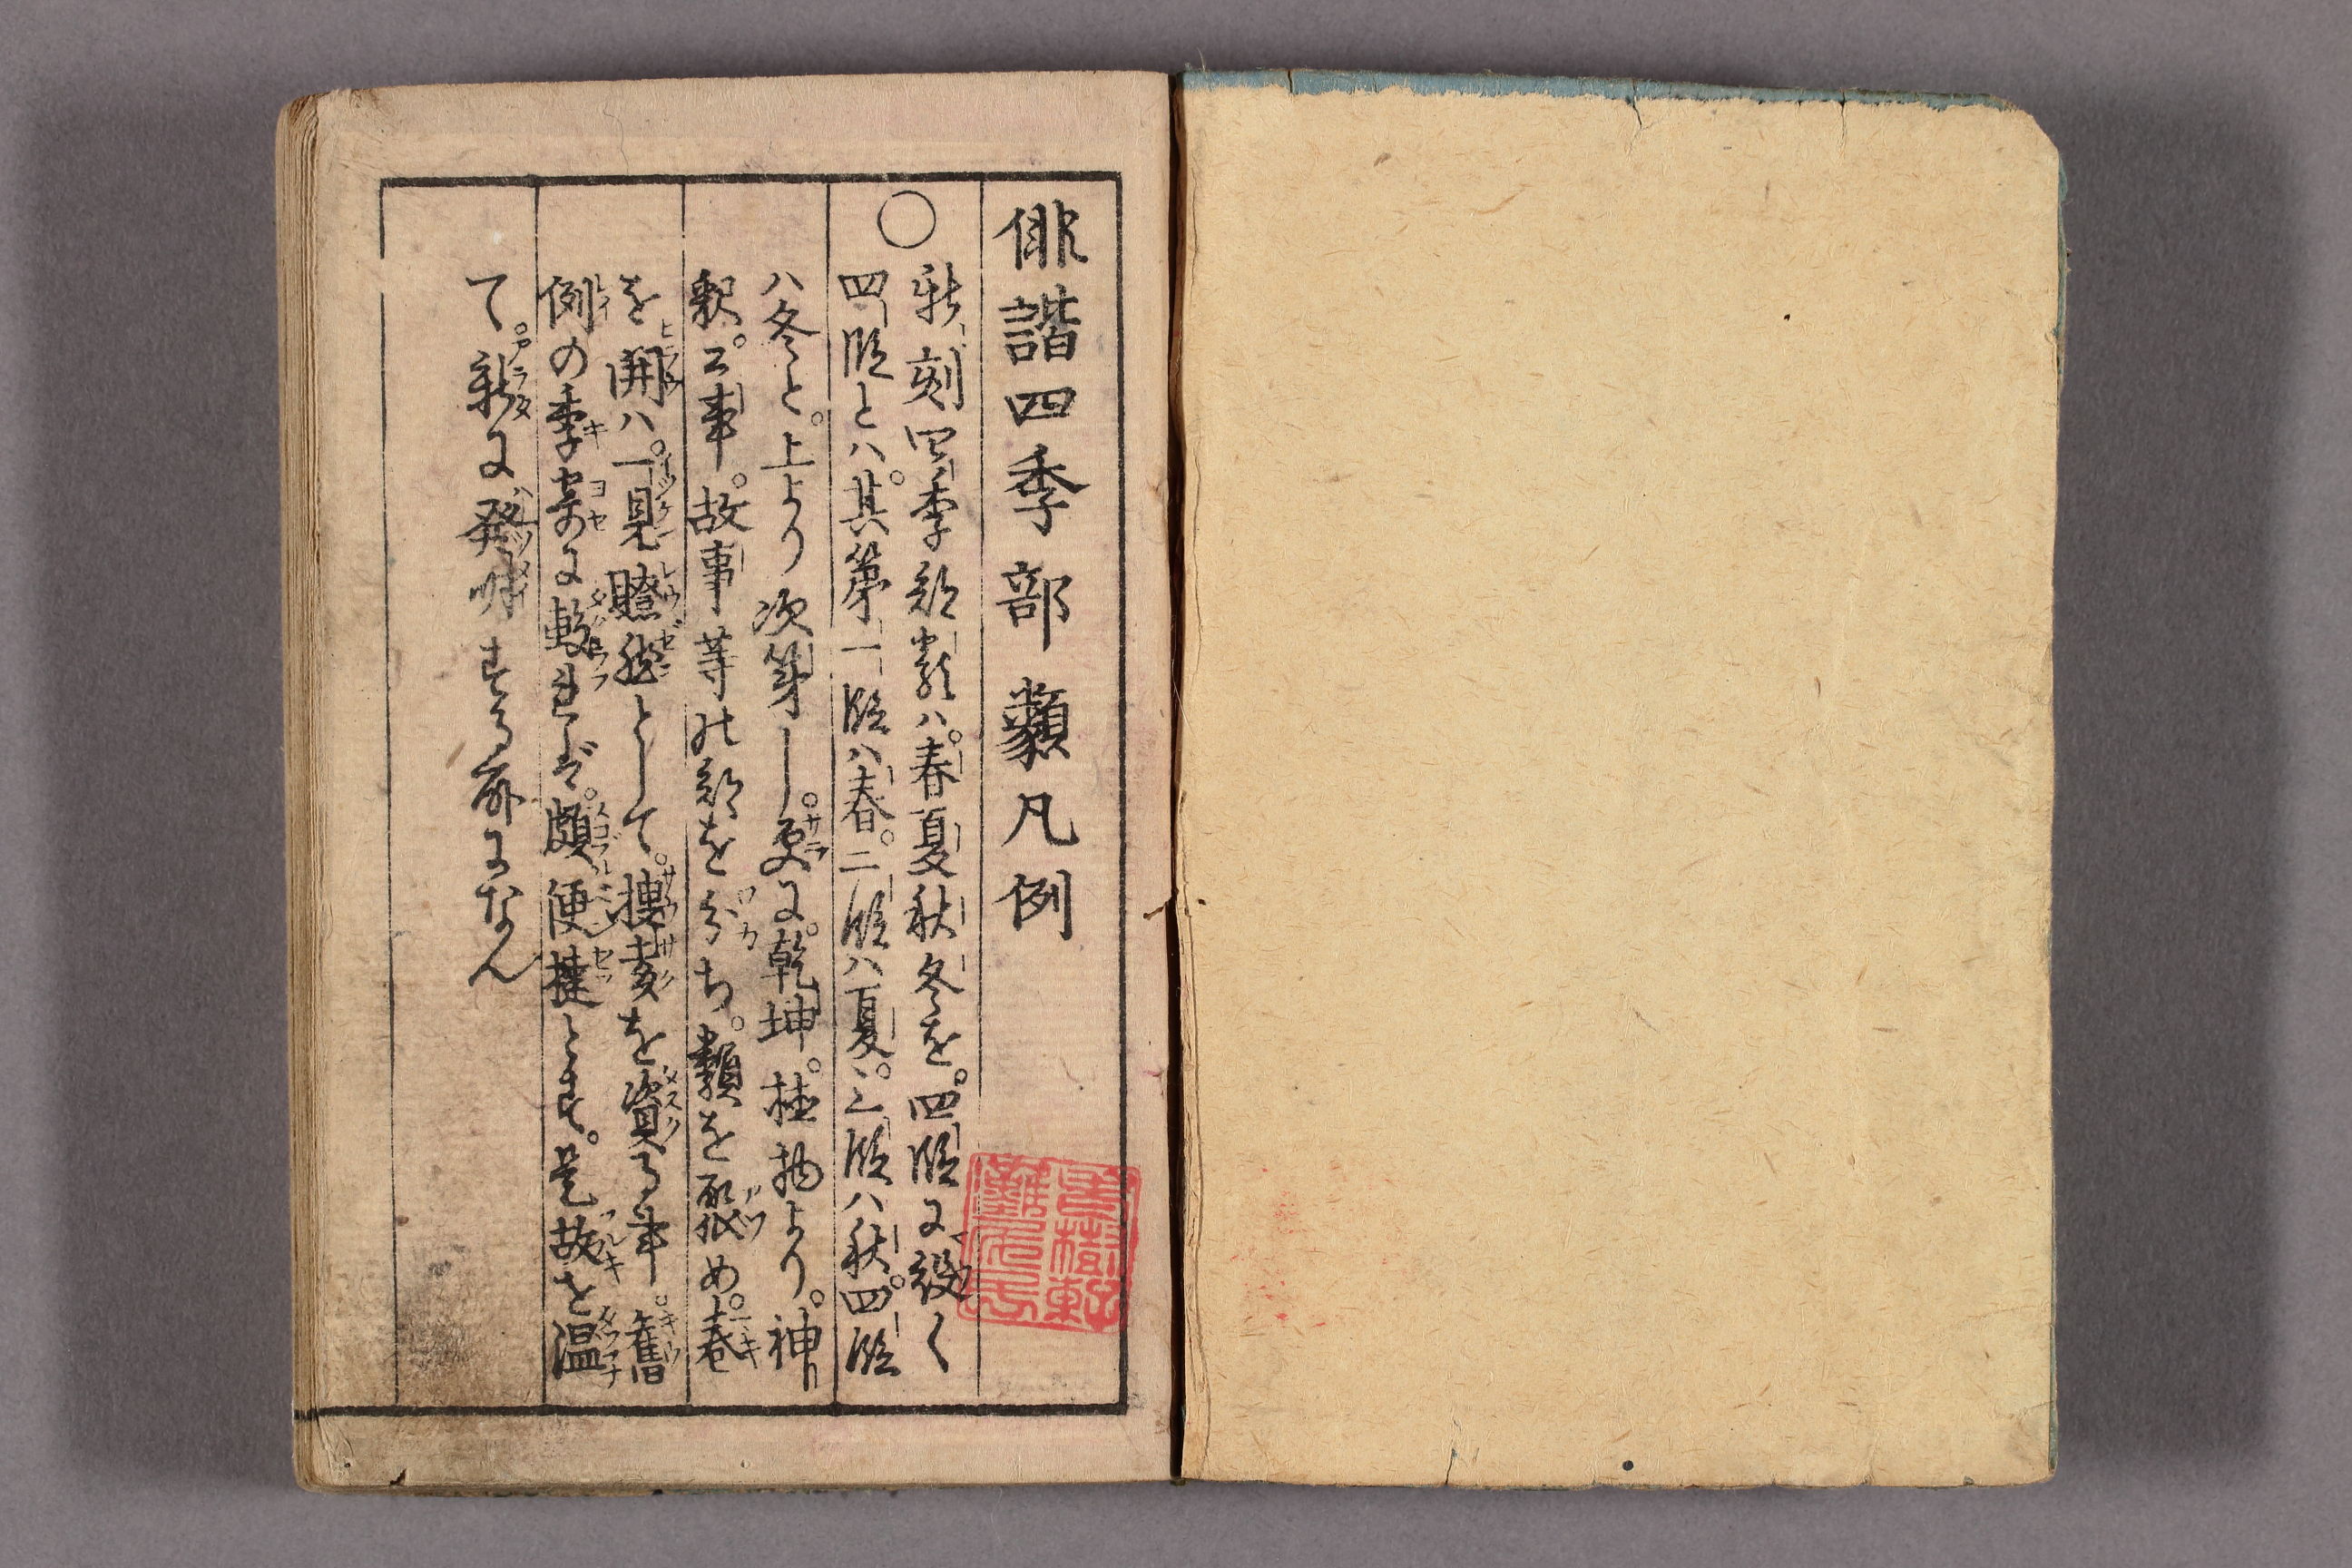 俳諧四季部類凡例
○新刻四季部類ハ。春夏秋冬を。四段に設く
四段とハ。其第一段ハ春。二段ハ夏。三段ハ秋。四段
ハ冬と。上より次第し。更に。乾坤。植物より。神
釈。公事。故事等の部を分ち。類を聚め。巻
を開ハ。一見瞭然として。捜索を資る事。舊
例の季寄に較れバ。頗便捷とす。是故を温
て。新に発明する所になん